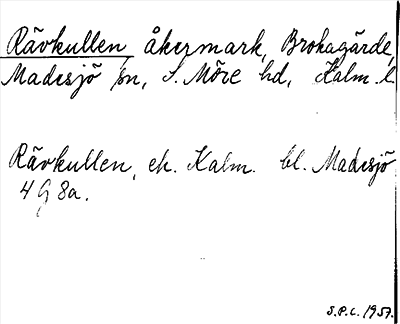 Rävkullen åkermark, Brokagärde,
Madesjö sn, S. Möre hd, Kalm. l.
Rävkullen, ek. Kalm. bl. Madesjö
4 G 8a.
S.P.L. 1957.